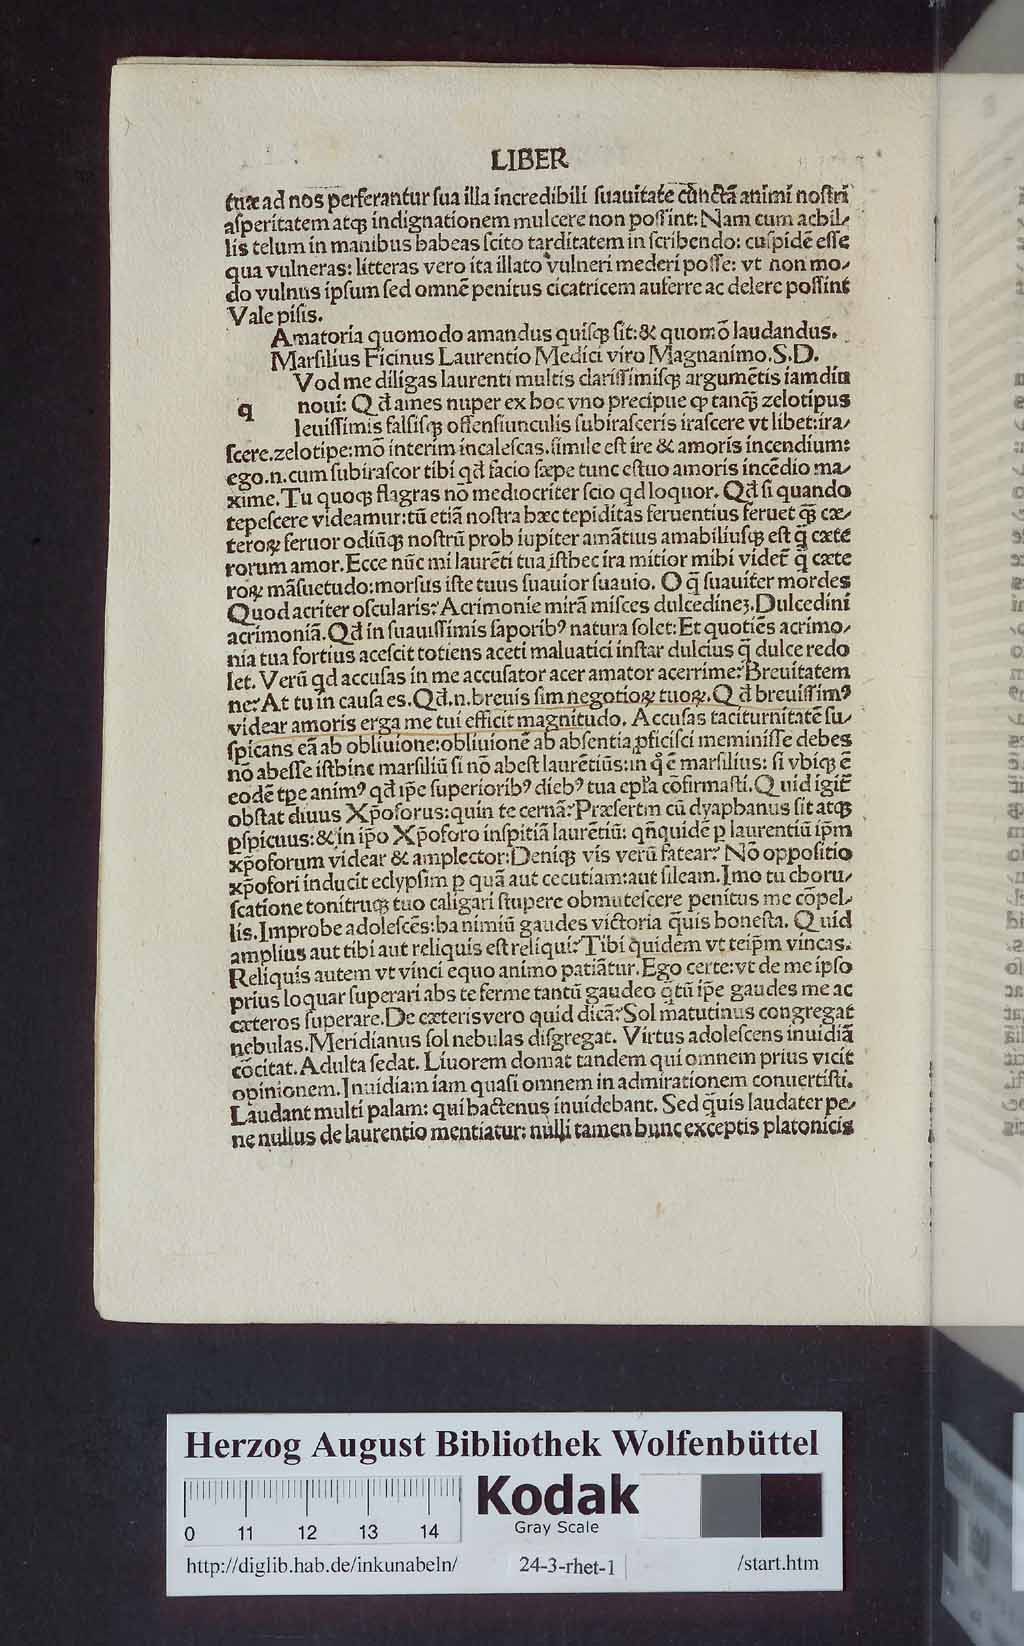 LIBER
tuæ ad nos perferantur sua illa incredibili suauitate cūnctā animi nostri
asperitatem atqꝫ indignationem mulcere non possint: Nam cum achil-
lis telum in manibus habeas scito tarditatem in scribendo: cuspidē esse
qua vulneras: litteras vero ita illato vulneri mederi posse: vt non mo-
do vulnus ipsum sed omnē penitus cicatricem auferre ac delere possint
Vale pisis.
Amatoria quomodo amandus quisqꝫ sit: & quomō laudandus.
Marsilius Ficinus Laurentio Medici viro Magnanimo. S.D.
q
Vod me diligas laurenti multis clarissimisqꝫ argumētis iamdiu
noui: Qđ ames nuper ex hoc vno precipue ꝙ tanqꝫ zelotipus
leuissimis falsisqꝫ offensiunculis subirasceris irascere vt libet: ira-
scere. zelotipe: mō interim incalescas. simile est ire & amoris incendium:
ego .n. cum subirascor tibi qđ facio sæpe tunc estuo amoris incēdio ma-
xime. Tu quoqꝫ flagras nō mediocriter scio qđ loquor. Qđ si quando
tepescere videamur: tū etiā nostra hæc tepiditas feruentius feruet qꝫ cæ-
teroꝝ feruor odiūqꝫ nostrū prob iupiter amātius amabiliusqꝫ est q̄ cæte
rorum amor. Ecce nūc mi laurēti tua isthec ira mitior mihi videt̄ q̄ cæte
roꝝ māsuetudo: morsus iste tuus suauior suauio. O q̄ suauiter mordes
Quod acriter oscularis? Acrimonie mirā misces dulcedineꝫ. Dulcedini
acrimoniā. Qđ in suauissimis saporibꝰ natura solet: Et quotiēs acrimo-
nia tua fortius acescit totiens aceti maluatici instar dulcius q̄ dulce redo
let. Verū qđ accusas in me accusator acer amator acerrime? Breuitatem
ne? At tu in causa es. Qđ .n. breuis sim negotioꝝ tuoꝝ. Qđ breuissimꝰ
videar amoris erga me tui efficit magnitudo. Accusas taciturnitatē su-
spicans eā ab obliuione: obliuionē ab absentia ꝓficisci meminisse debes
nō abesse isthinc marsiliū si nō abest laurētius: in q̄ ē marsilius: si vbiqꝫ ē
eodē tpe animꝰ qđ ip̄e superioribꝰ diebꝰ tua epl̄a cōfirmasti. Quid igit̄
obstat diuus Xp̄oforus: quin te cernā? Præsertm cū dyaphanus sit atqꝫ
ꝑspicuus: & in ip̄o Xp̄oforo inspitiā laurētiū: qn̄quidē ꝑ laurentiū ip̄m
xp̄oforum videar & amplector: Deniqꝫ vis verū fatear? Nō oppositio
xp̄ofori inducit eclypsim ꝑ quā aut cecutiam: aut sileam. Imo tu choru-
scatione tonitruqꝫ tuo caligari stupere obmutescere penitus me cōpel-
lis. Improbe adolescēs: ha nimiū gaudes victoria q̄uis honesta. Quid
amplius aut tibi aut reliquis est reliqui? Tibi quidem vt teip̄m vincas.
Reliquis autem vt vinci equo animo patiātur. Ego certe: vt de me ipso
prius loquar superari abs te ferme tantū gaudeo q̄tū ip̄e gaudes me ac
cæteros superare. De cæteris vero quid dicā? Sol matutinus congregat
nebulas. Meridianus sol nebulas disgregat. Virtus adolescens inuidiā
cōcitat. Adulta sedat. Liuorem domat tandem qui omnem prius vicit
opinionem. Inuidiam iam quasi omnem in admirationem conuertisti.
Laudant multi palam: qui hactenus inuidebant. Sed q̄uis laudater pe-
ne nullus de laurentio mentiatur: nulli tamen hunc exceptis platonicis
Herzog August Bibliothek Wolfenbüttel
0 11 12 13 14
Kodak
Gray Scale
http://diglib.hab.de/inkunabeln/ 24-3-rhet-1 /start.htm